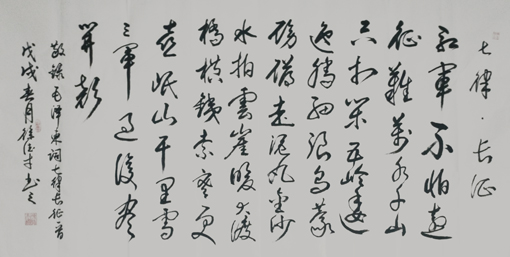 七律·长征
红軍不怕远
征難萬水千山
只等闲五岭逶
迤腾细浪烏蒙
磅礴走泥丸金沙
水拍雲崖暖大渡
橋横鐵索寒更
喜岷山千里雪
三軍过後尽
開颜
敬録毛泽东词七律长征一首
戊戌春月徐